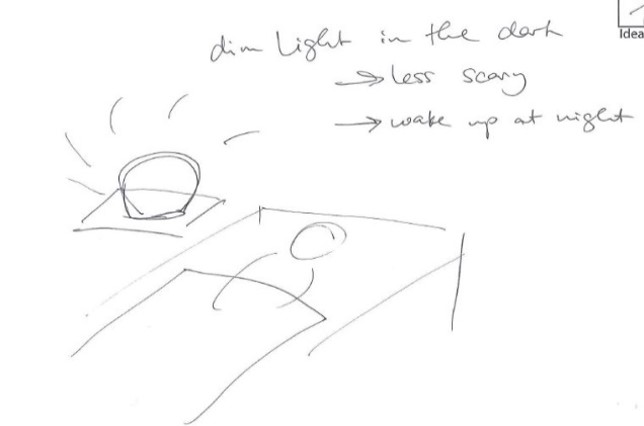 Idea
dim light in the dark
→ less scary
→ wake up at night